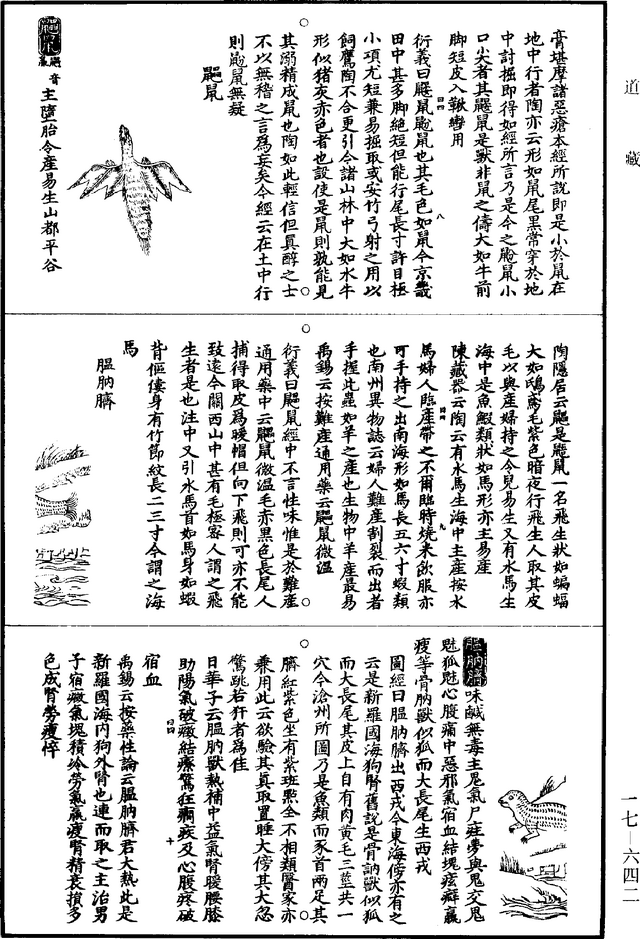 道藏
膏堪摩諸惡瘡本經所說即是小於鼠在
地中行者陶亦云形如鼠尾黑常穿於地
中討掘即得如經所言乃是今之鼢鼠小
口尖者其鼴鼠是獸非鼠之儔大如牛前
脚短皮入鞦轡用
衍義曰鼴鼠鼢鼠也其毛色如鼠今京畿
田中甚多脚絕短但能行尾長寸許目極
小項尤短兼易掘取或安竹弓射之用以
飼鷹陶不合更引今諸山林中大如水牛
形似猪灰赤色者也設使是鼠則孰能見
其溺精成鼠也陶如此輕信但真醇之士
不以無稽之言為妄矣今經云在土中行
則鼢鼠無疑
鼯鼠
主墮胎令產易生山都平谷
陶隱居云鼺是鼯鼠一名飛生狀如蝙蝠
大如鴟鳶毛紫色暗夜行飛生人取其皮
毛以與產婦持之令兒易生又有水馬生
海中是魚鰕類狀如馬形亦主易產
陳藏器云陶云有水馬生海中主產按水
馬婦人臨產帶之不爾臨時燒末飲服亦
可手持之出南海形如馬長五六寸蝦類
也南州異物誌云婦人難產割裂而出者
手握此蟲如羊之產也生物中羊產最易
禹錫云按難產通用藥云鼺鼠微溫
衍義曰鼺鼠經中不言性味惟是於難產
通用藥中云鼺鼠微溫毛赤黑色長尾人
捕得取皮為暖帽但向下飛則可亦不能
致遠今關西山中甚有毛極密人謂之飛
生者是也注中又引水馬首如馬身如蝦
背傴僂身有竹節紋長二三寸今謂之海
馬
膃肭臍
膃肭臍
味鹹無毒主鬼氣尸疰夢與鬼交鬼
魅狐魅心腹痛中惡邪氣宿血結塊痃癖羸
瘦等骨肭獸似狐而大長尾生西戎
圖經曰膃肭臍出西戎今東海傍亦有之
云是新羅國海狗腎舊說是骨訥獸似狐
而大長尾其皮上自有肉黃毛三莖共一
穴今滄州所圖乃是魚類而豕首兩足其
臍紅紫色坐有紫班點全不相類醫家亦
兼用此云欲驗其真取置睡犬傍其犬忽
驚跳若狂者為佳
日華子云膃肭獸熱補中益氣腎暖腰膝
助陽氣破癥結療驚狂癇疾及心腹疼破
宿血
禹錫云按藥性論云膃肭臍君大熱此是
新羅國海內狗外腎也連而取之主治男
子宿癥氣塊積冷勞氣羸瘦腎精衰損多
色成腎勞瘦悴
一七—六四二